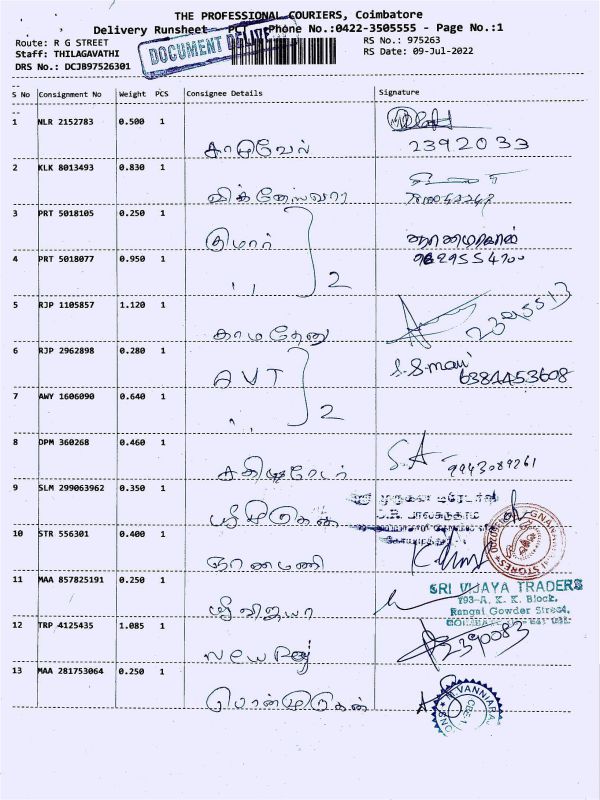 THE PROFESSIONAL COURIERS, Coimbatore
Delivery Runsheet Phone No.:0422-3505555 - Page No.:1
DOCUMENT
Route: R G STREET RS No.: 975263
Staff: THILAGAVATHI RS Date: 09-Jul-2022
DRS No.: DCJB97526301
S No Consignment No Weight PCS Consignee Details Signature
1 NLR 2152783 0.500 1
2392033
2 KLK 8013493 0.830 1
3 PRT 5018105 0.250 1 குமார்
4 PRT 5018077 0.950 1 ,, 2
5 RJP 1105857 1.120 1
காமதேனு
6 RJP 2962898 0.280 1 AVT S.S.mani
6384453608
7 AWY 1606090 0.640 1 ,, 2
8 DPM 360268 0.460 1 S.A
9943089261
9 SLM 299063962 0.350 1
ஸ்ரீ முருகன்
10 STR 556301 0.400 1
ஞானமணி
11 MAA 857825191 0.250 1 SRI VIJAYA TRADERS
793-A, K. K. Block,
Rangai Gowder Street,
ஸ்ரீ விஜயா
12 TRP 4125435 1.085 1
2390083
13 MAA 281753064 0.250 1
பொன்முருகன்